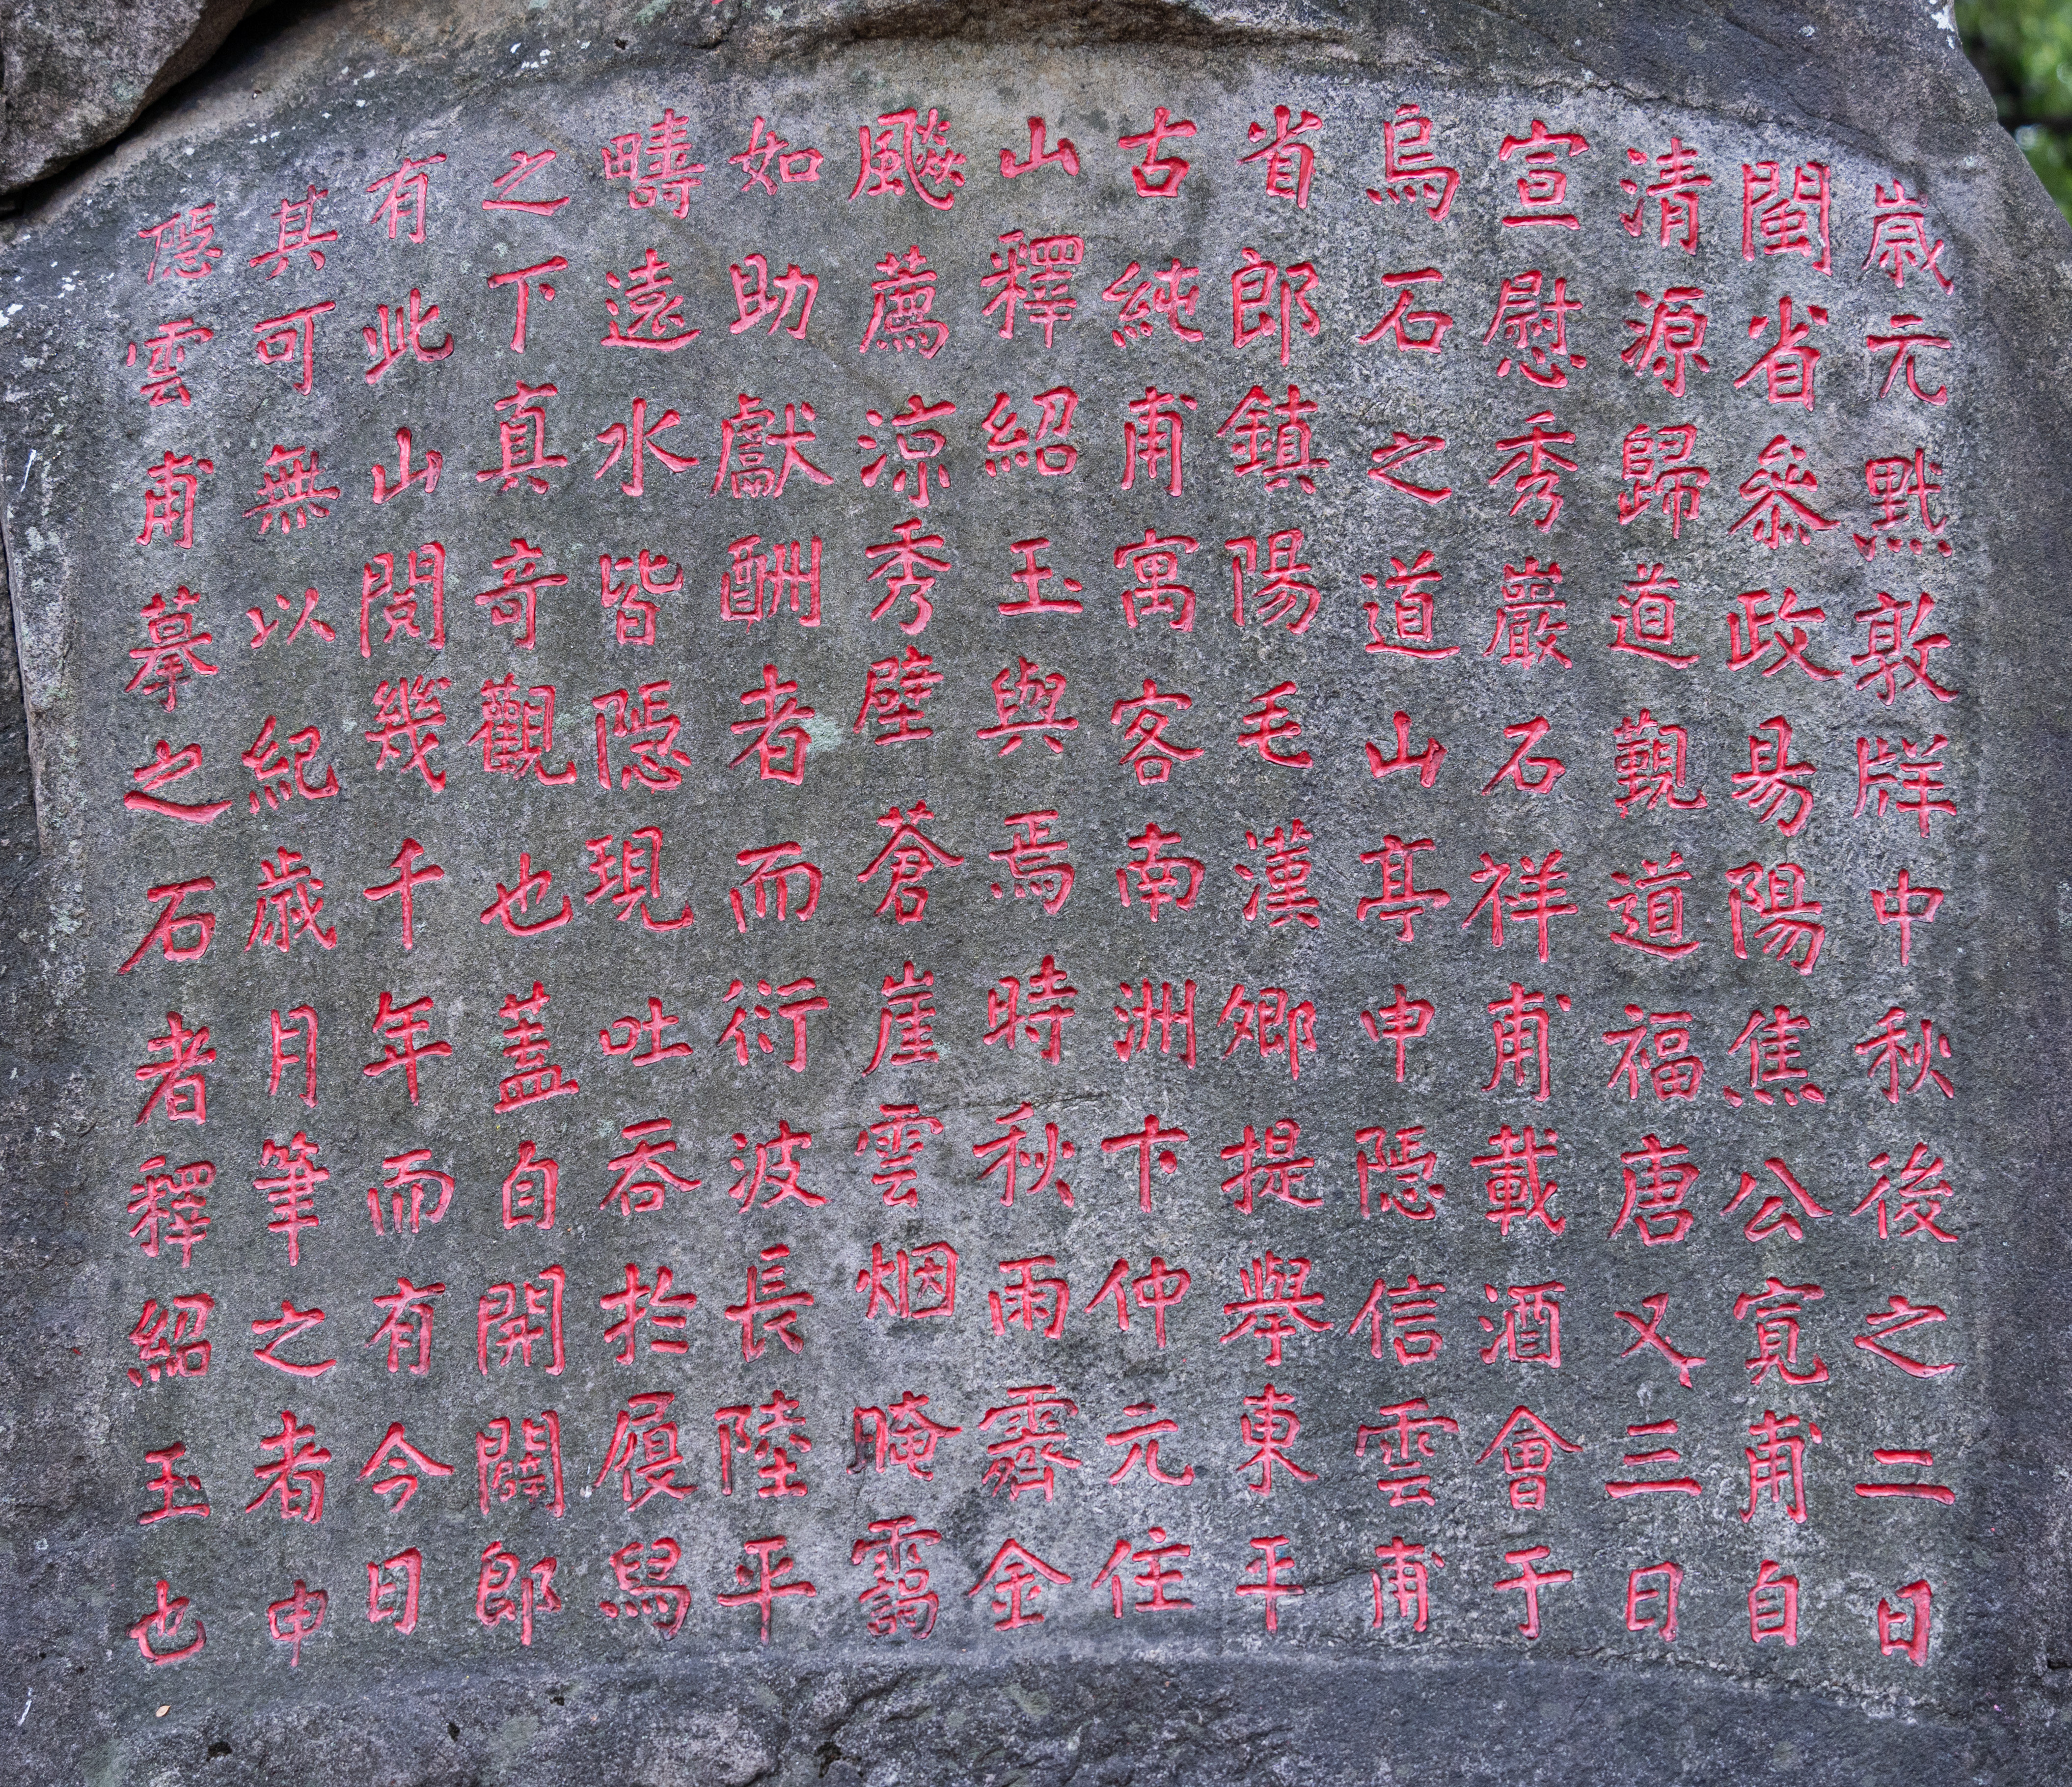 歲元黓敦牂中秋後之二日
閩省叅政昜陽焦公寬甫自
清源歸道觀道福唐又三日
宣慰秀巖石祥甫載酒會于
烏石之道山亭申隱信雲甫
省郎鎮陽毛漢卿提舉東平
古純甫寓客南洲卞仲元住
山釋紹玉與焉時秋雨霽金
飈薦涼秀壁蒼崖雲烟晻靄
如助獻酬者而衍波長陸平
疇遠水皆隱現吐吞於屐舄
之下真奇觀也蓋自開闢郎
有此山閱幾千年而有今日
其可無以紀歲月筆之者申
隱雲甫摹之石者釋紹玉也